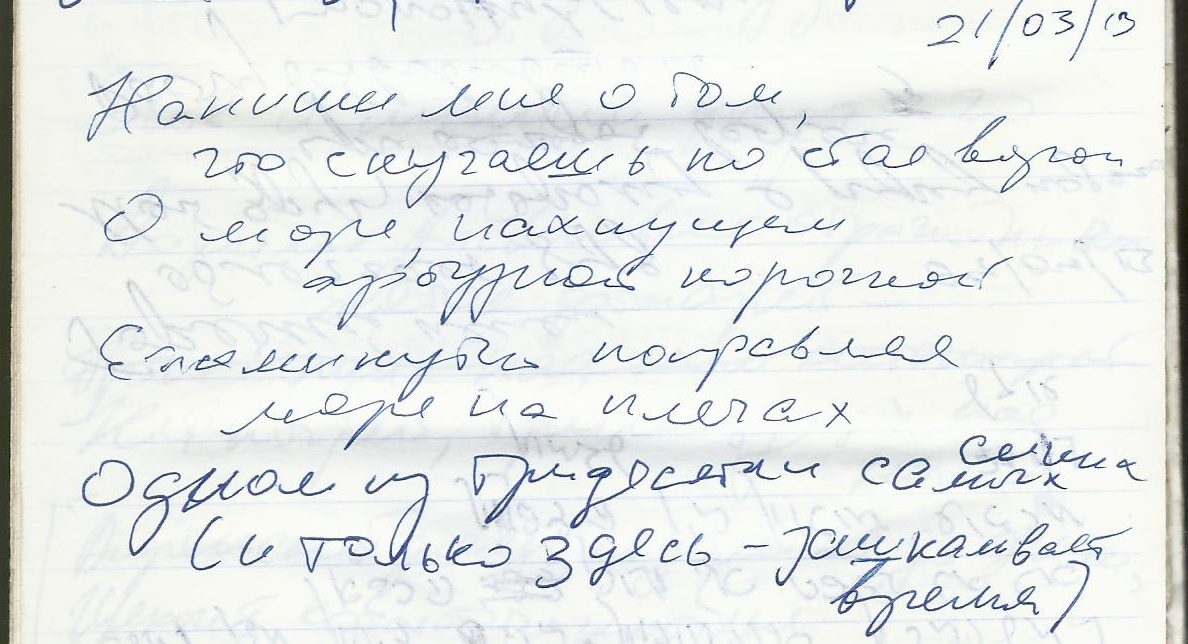 21/03/13
Напиши мне о том,
что скучаешь по стае ворон
О море, пахнущем
арбузной корочкой
Ежеминутно поправляя
море на плечах
Одном из тридесяти самых
(и только здесь - зашкаливает
время)